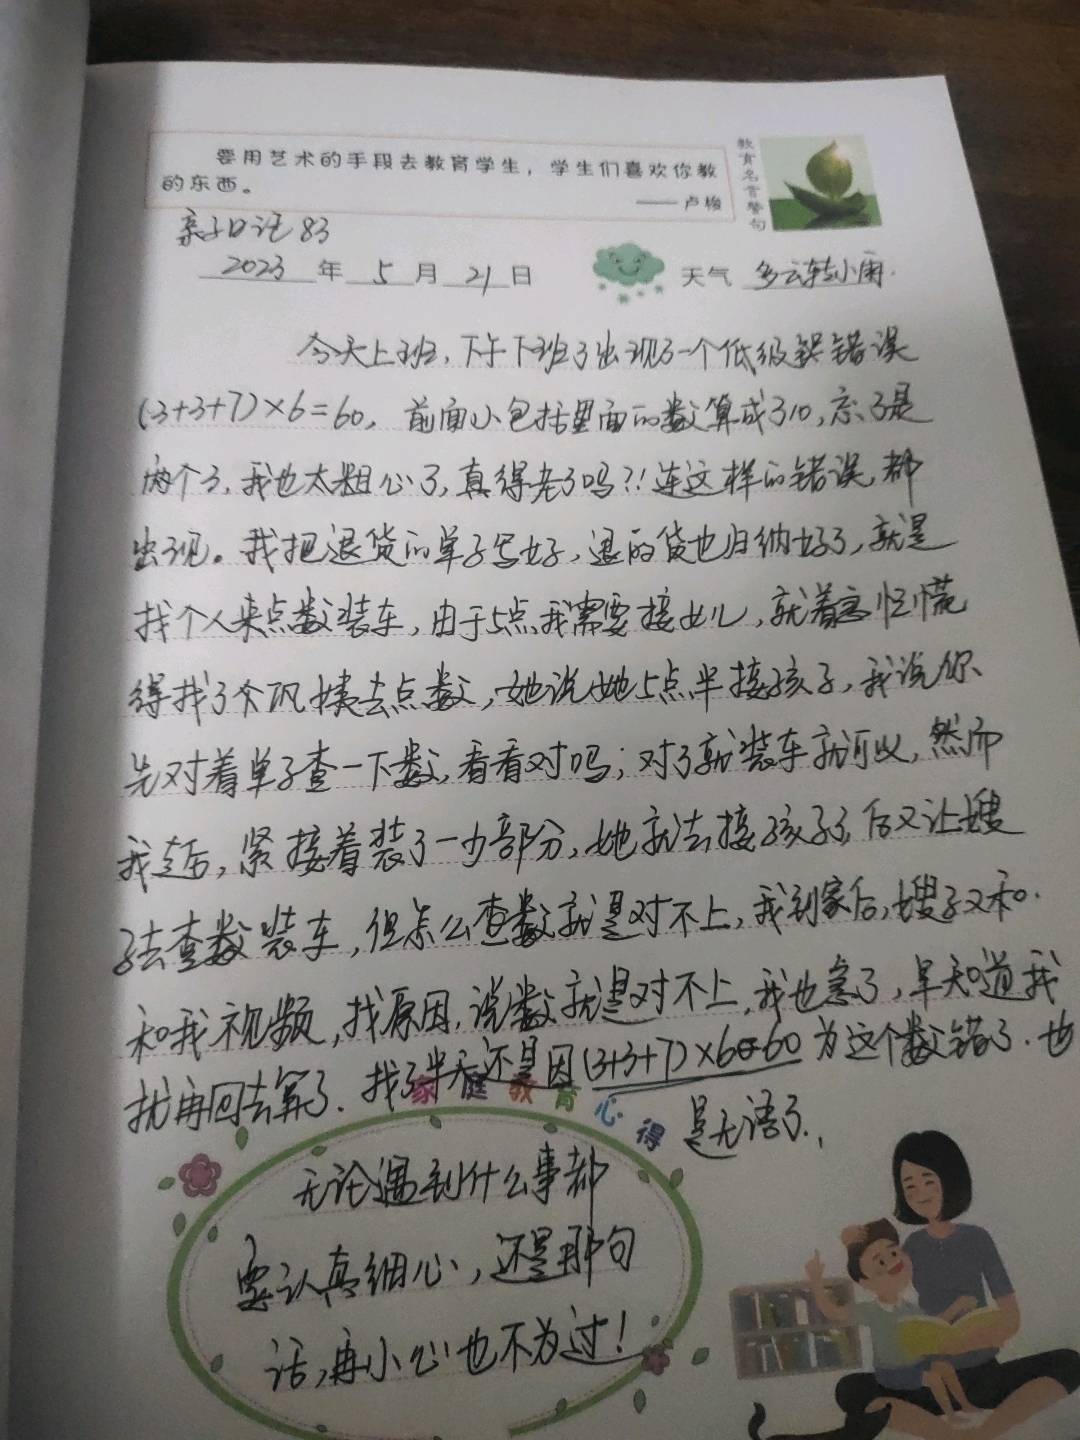 要用艺术的手段去教育学生，学生们喜欢你教
的东西。
——卢梭
教育名言警句
亲子日记 83
2023 年 5 月 21 日 天气 多云转小雨.
今天上班，下午下班了出现了一个低级错误
(3+3+7)×6=60，前面小包括里面的数算成了10，忘了是
两个3，我也太粗心了，真得老了吗?!连这样的错误,都
出现。我把退货的单子写好，退的货也归纳好了，就是
找个人来点数装车，由于5点我需要接女儿，就着急忙慌
得找了个巩姨去点数，她说她5点半接孩子，我说你
先对着单子查一下数，看看对吗；对了就装车就可以，然而
我走后，紧接着装了一少部分，她就去接孩子了，后又让嫂
子去查数装车，但怎么查数就是对不上，我到家后，嫂子又和.
和我视频，找原因，说数就是对不上，我也急了，早知道我
就再回去算了．找了半天还是因(3+3+7)×6=60 为这个数错了．也
是无语了．
家庭教育心得
无论遇到什么事都
要认真细心，还是那句
话，再小心也不为过！